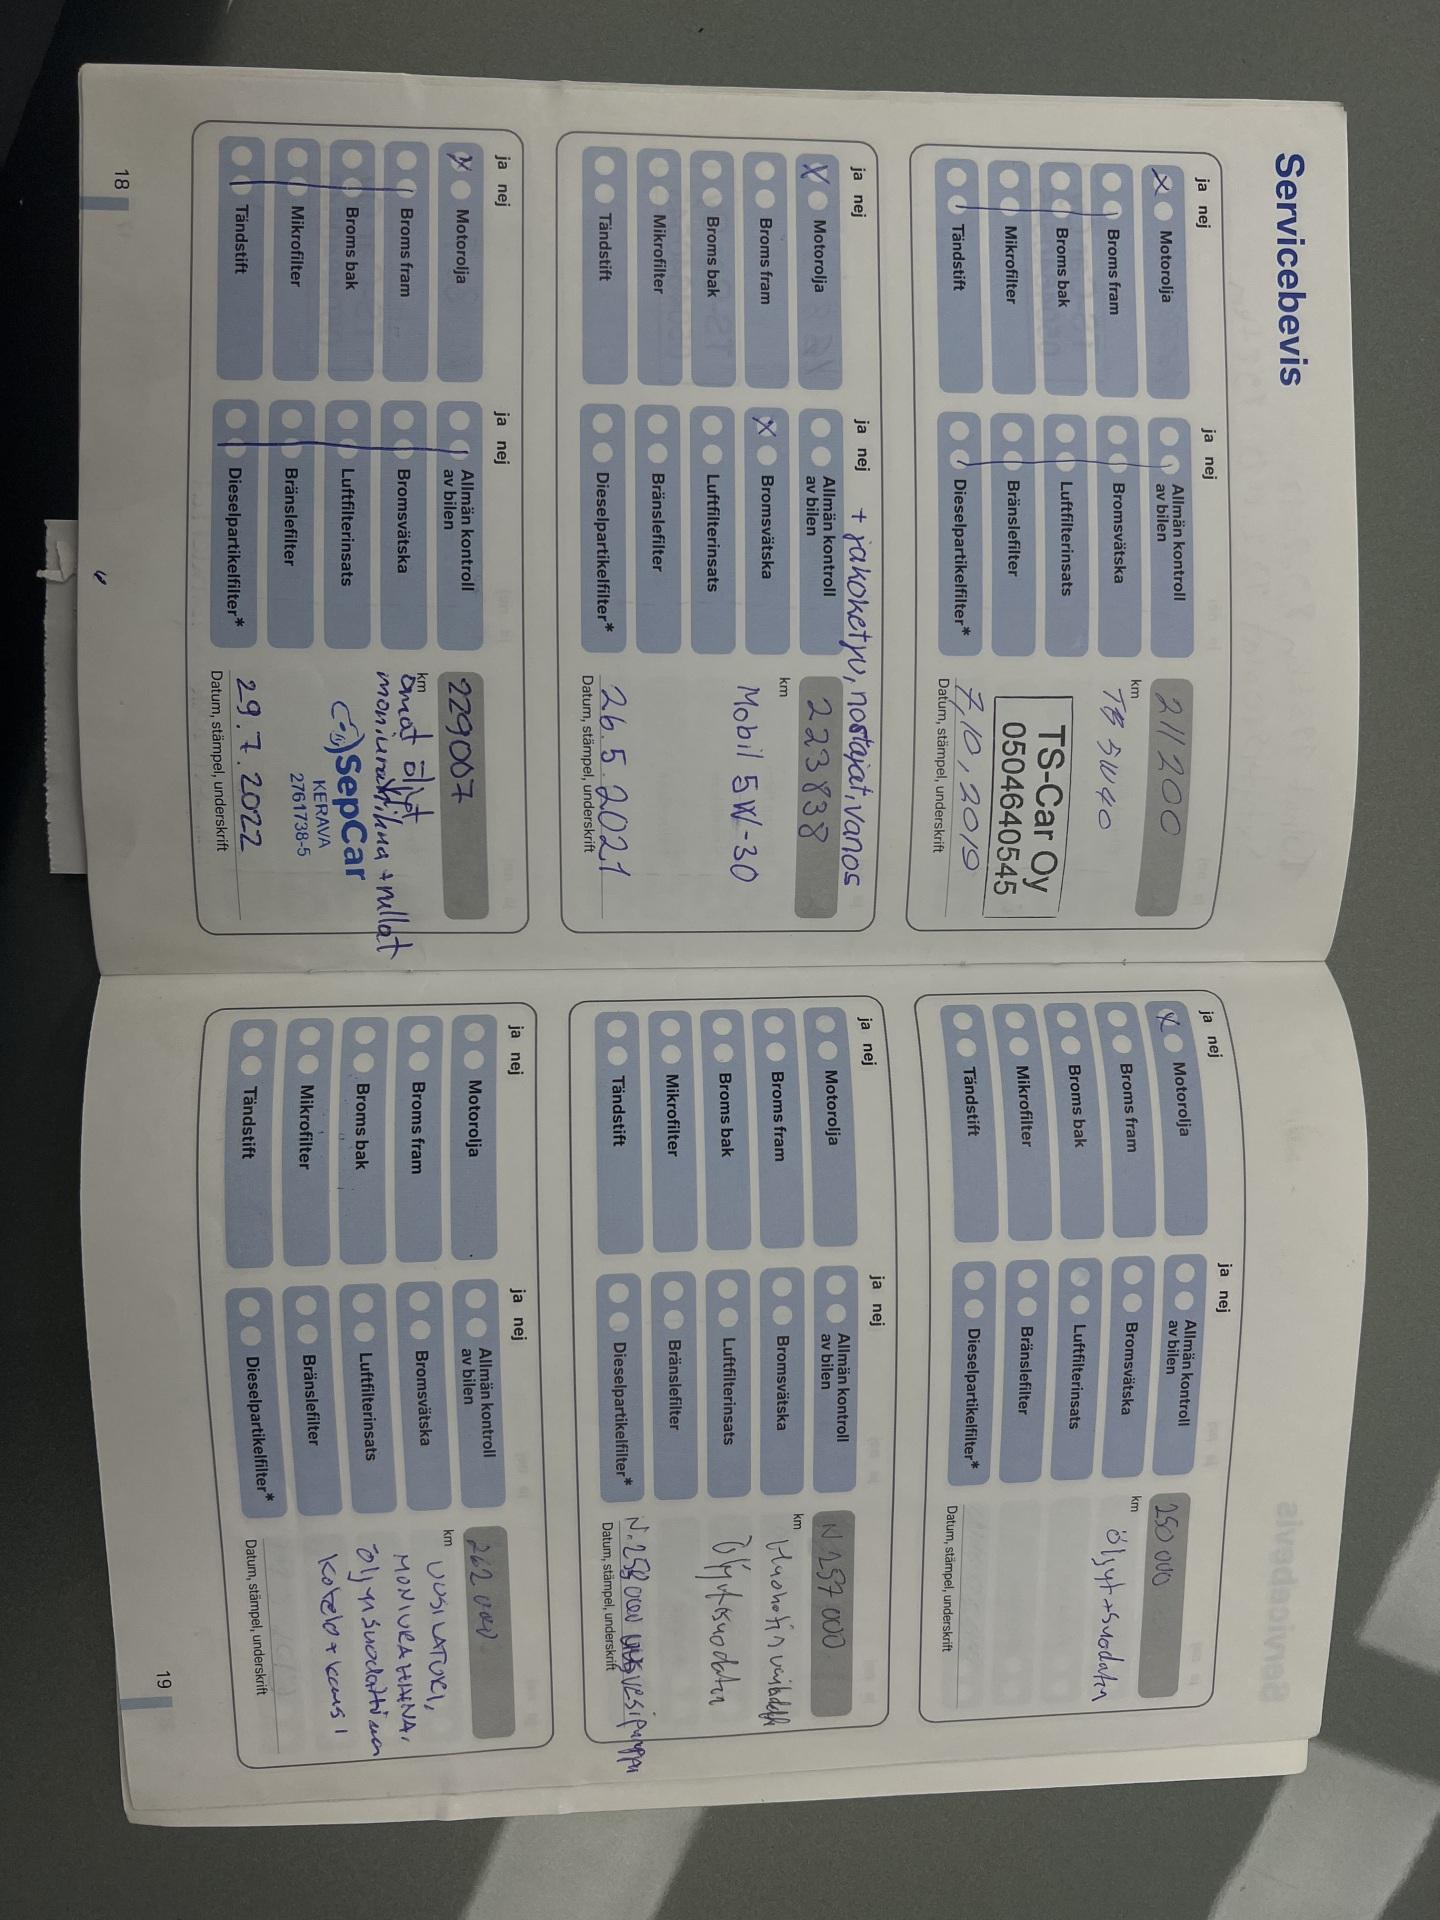 Servicebevis
ja nej
Motorolja
Broms fram
Broms bak
Mikrofilter
Tändstift
ja nej
Allmän kontroll
av bilen
Bromsvätska
Luftfilterinsats
Bränslefilter
Dieselpartikelfilter*
211200
km
TB 5W40
TS-Car Oy
0504640545
7,10,2019
Datum, stämpel, underskrift
ja nej
Motorolja
Broms fram
Broms bak
Mikrofilter
Tändstift
ja nej + jakoketju, nostajat, vanos
Allmän kontroll
av bilen
Bromsvätska
Luftfilterinsats
Bränslefilter
Dieselpartikelfilter*
223838
km
Mobil 5W-30
26.5.2021
Datum, stämpel, underskrift
ja nej
Motorolja
Broms fram
Broms bak
Mikrofilter
Tändstift
ja nej
Allmän kontroll
av bilen
Bromsvätska
Luftfilterinsats
Bränslefilter
Dieselpartikelfilter*
229007
km
omat öljyt
moniurahihna + rullat
SepCar
KERAVA
2761738-5
29.7.2022
Datum, stämpel, underskrift
18
ja nej
Motorolja
Broms fram
Broms bak
Mikrofilter
Tändstift
ja nej
Allmän kontroll
av bilen
Bromsvätska
Luftfilterinsats
Bränslefilter
Dieselpartikelfilter*
250 000
km
öljyt + suodatin
Datum, stämpel, underskrift
ja nej
Motorolja
Broms fram
Broms bak
Mikrofilter
Tändstift
ja nej
Allmän kontroll
av bilen
Bromsvätska
Luftfilterinsats
Bränslefilter
Dieselpartikelfilter*
N.257 000
km
Huohotin
Öljyt+suodatin
N.258 000 vesipumppu
Datum, stämpel, underskrift
ja nej
Motorolja
Broms fram
Broms bak
Mikrofilter
Tändstift
ja nej
Allmän kontroll
av bilen
Bromsvätska
Luftfilterinsats
Bränslefilter
Dieselpartikelfilter*
262 000
km
UUSI LATURI,
MONIURAHIHNA,
öljynsuodattimen
kotelo + kansi
Datum, stämpel, underskrift
19